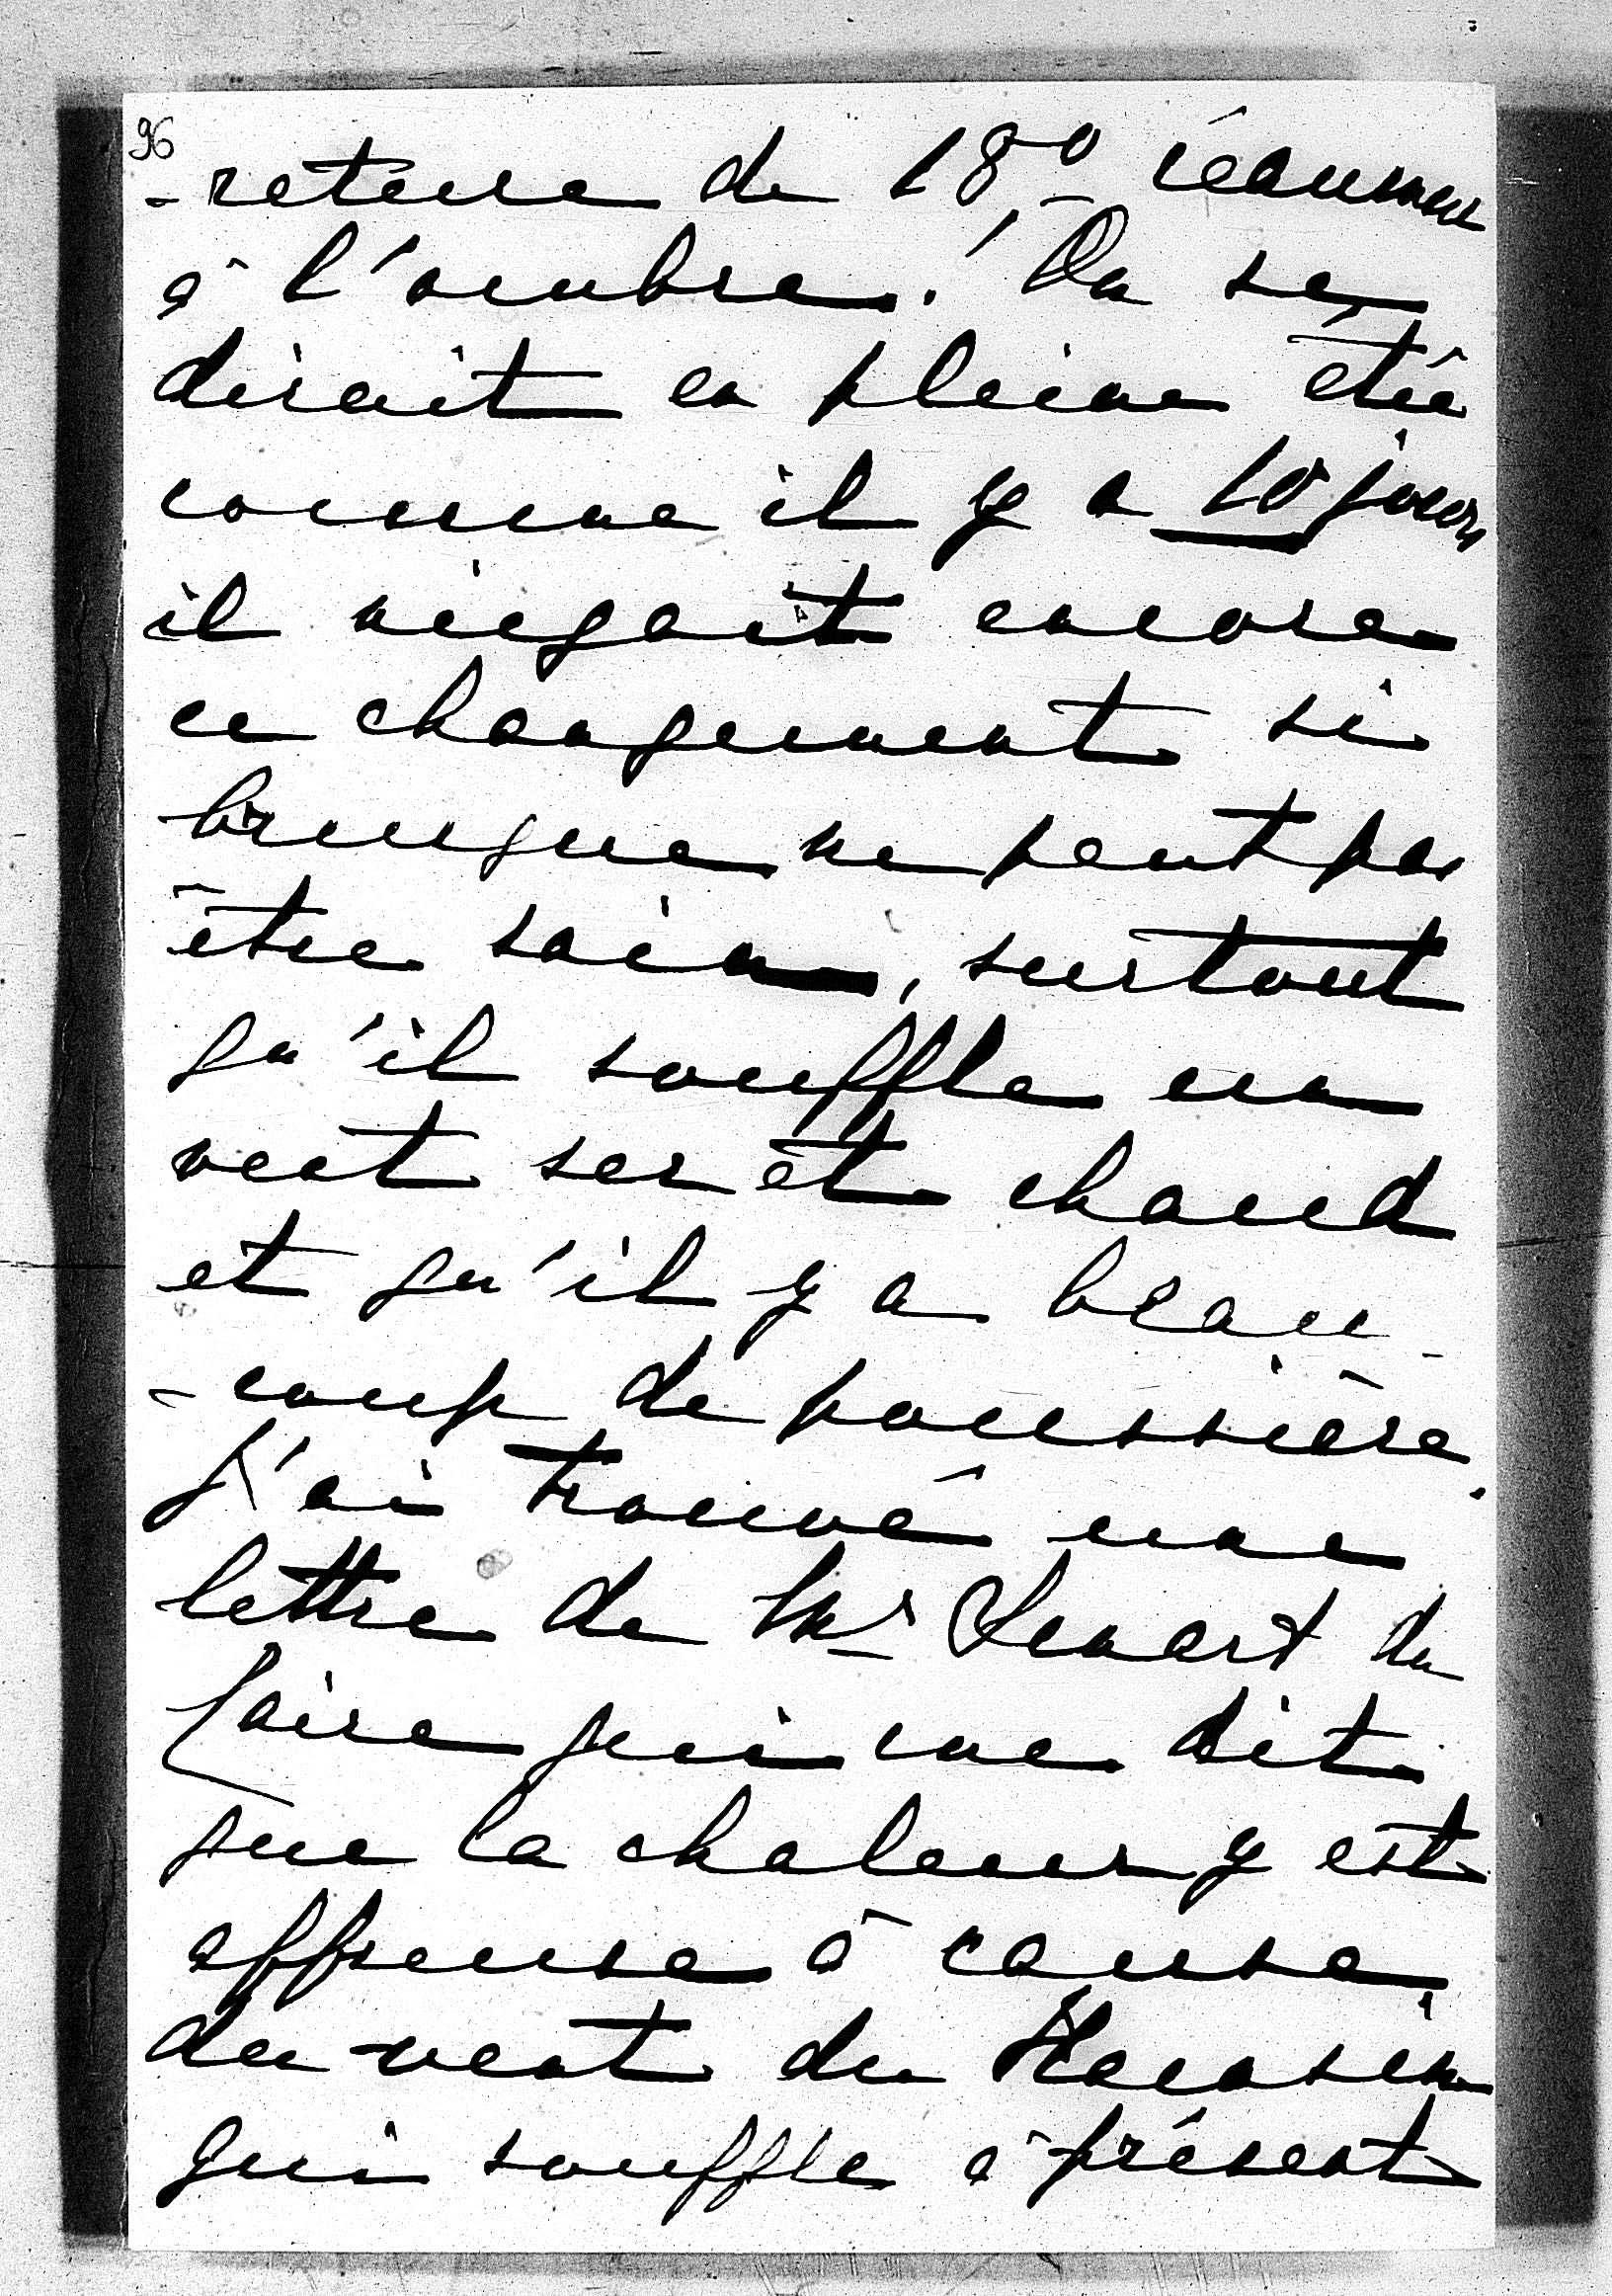 96
-rature de 18° réaumur
à l'ombre. On se
dirait en pleine été
comme il y a 10 jours
il neigait encore
ce changement si
brusque ne peut pas
être sain, surtout
qu'il souffle un
vent sec et chaud
et qu'il y a beau-
-coup de poussière.
J'ai trouvé une
lettre de Mr du
Caire qui me dit
que la chaleur y est
affreuse à cause
du vent du Hamsin
qui souffle à présent